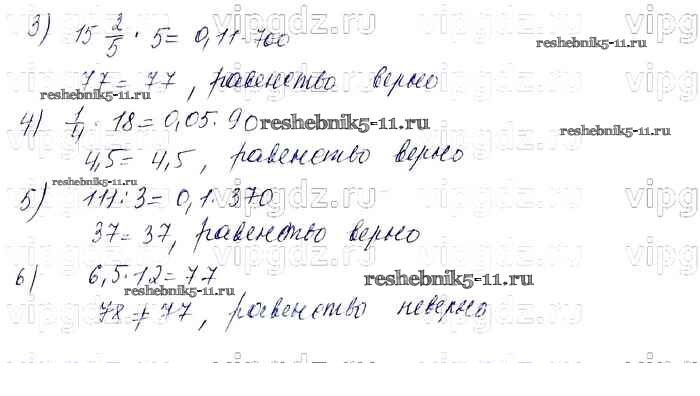 3) 15 2/5 · 5 = 0,11 · 700
77 = 77, равенство верно
reshebnik5-11.ru
4) 1/4 · 18 = 0,05 · 90
reshebnik5-11.ru
4,5 = 4,5, равенство верно
reshebnik5-11.ru
reshebnik5-11.ru
5) 111 : 3 = 0,1 · 370
37 = 37, равенство верно
6) 6,5 · 12 = 77
reshebnik5-11.ru
reshebnik5-11.ru
78 ≠ 77, равенство неверно
reshebnik5-11.ru
vipgdz.ru
vipgdz.ru
vipgdz.ru
vipgdz.ru
vipgdz.ru
vipgdz.ru